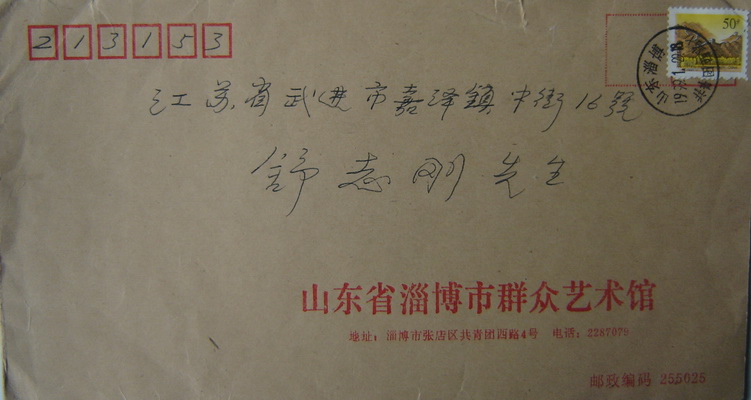 213153
50分
江苏省武进市嘉泽鎮中街16號
舒志刚先生
山东省淄博市群众艺术馆
地址：淄博市张店区共青团西路4号 电话：2287079
邮政编码 255025
山东淄博